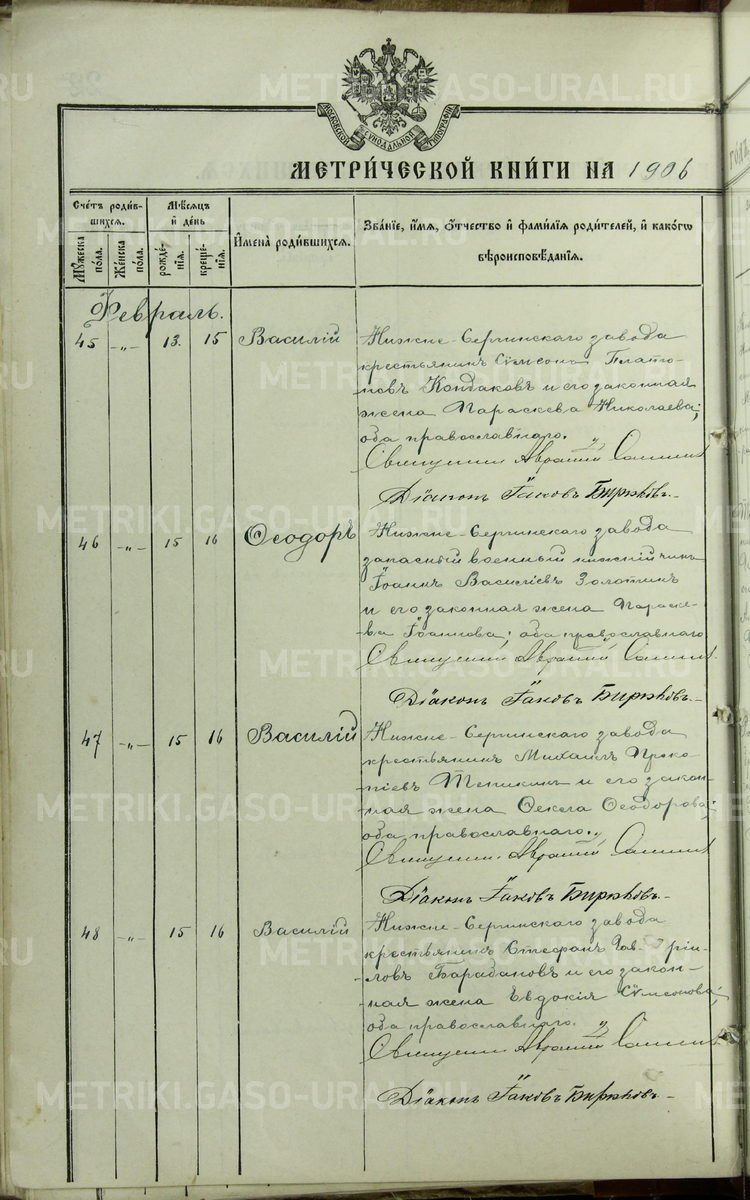 МОСКОВСКОЙ СѴНОДАЛЬНОЙ ТИПОГРАФІИ
МЕТРИ́ЧЕСКОЙ КНИ́ГИ НА 1906
Сче́тъ роди́в-
шихся.
Мꙋ́жеска по́ла.
Же́нска по́ла.
Мѣ́сяцъ
и҆ де́нь
рожде́-
нїя.
креще́-
нїя.
И҆мена̀ роди́вшихся.
Зва́нїе, и҆́мя, ѻ҆́тчество и҆ фами́лїя роди́телей, и҆ како́гѡ
вѣроисповѣ́данїя.
Февраль.
45 -„- 13. 15 Василій
Нижне-Сергинскаго завода
крестьянинъ Сѵмеонъ Плато-
новъ Кондаковъ и его законная
жена Параскева Николаева;
оба православнаго.
Священник Авраамій
Діаконъ Іаковъ Бирюковъ.
46 -„- 15 16 Ѳеодоръ
Нижне-Сергинскаго завода
запасный военный нижній чинъ
Іоаннъ Василіевъ Золотинъ
и его законная жена Параске-
ва Іоаннова; оба православнаго
Священник Авраамій
Діаконъ Іаковъ Бирюковъ.
47 -„- 15 16 Василій
Нижне-Сергинскаго завода
крестьянинъ Михаилъ Проко-
піевъ Тепикинъ и его закон-
ная жена Ѳекла Ѳеодорова;
оба православнаго.
Священник Авраамій
Діаконъ Іаковъ Бирюковъ.
48 -„- 15 16 Василій
Нижне-Сергинскаго завода
крестьянинъ Стефанъ Гав-ріи-
ловъ Барабановъ и его закон-
ная жена Евдокія Сѵмеонова;
оба православнаго.
Священник Авраамій
Діаконъ Іаковъ Бирюковъ
METRIKI.GASO-URAL.RU